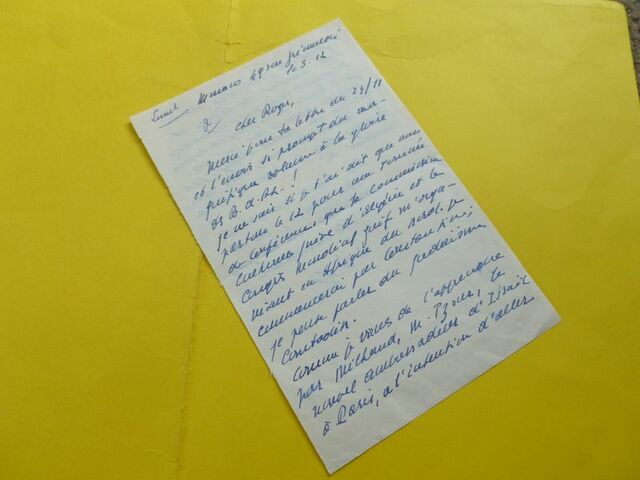 Lunel Monaco 49 rue Grimaldi
le 3.12
Cher Roger,
Merci pour ta lettre du 24/11
et l'envoi si prompt du ma-
gnifique volume à la gloire
des B. d. Rh. !
Je ne sais si je t'ai dit que nous
partons le 12 pour une tournée
de conférences que la commission
culturelle juive d'Algérie et le
Congrès Mondial juif m'orga-
nisent en Afrique du Nord. Je
commencerai par Constantine,
je pense parler du judaïsme
Comtadin.
Comme je viens de l'apprendre
par Milhaud, M. le
nouvel ambassadeur d'Israël
à Paris, a l'intention d'aller